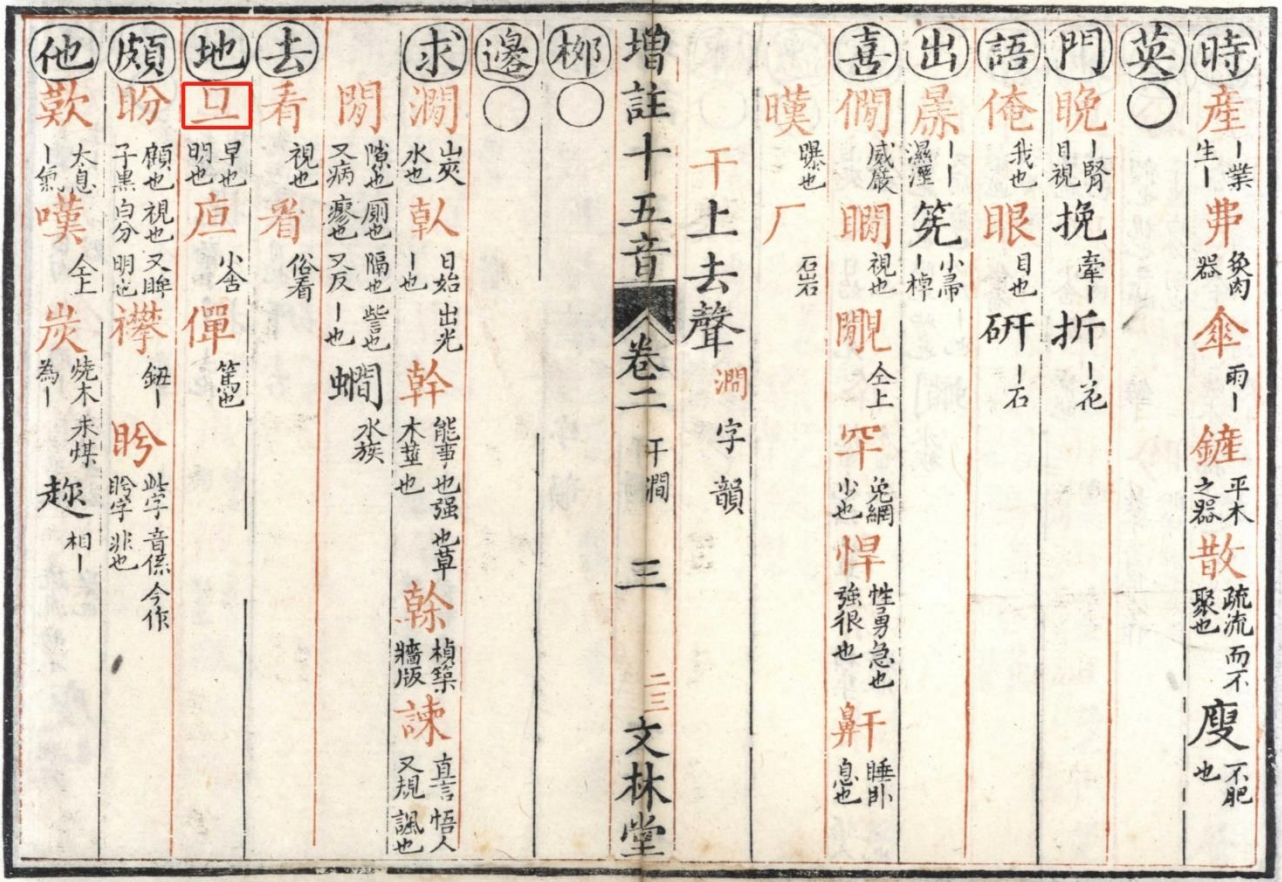 時 產 ー業生ー 弗 炙肉器 傘 雨ー 鏟 平木之器 散 疏流而不聚也 廋 不肥也
英 〇
門 晩 ー腎目視 挽 牽ー 折 ー花
語 俺 我也 眼 目也 研 ー石
出 㬥 ーー濕溼 筅 小帚ー椑
喜 僩 威嚴也 瞯 視也 覸 仝上 罕 免網少也 悍 性勇急也強很也 鼾 睡卧息也
嘆 曝也 厂 石岩
干上去聲 澗字韻
增註十五音 卷二 干澗 三 二三 文林堂
柳 〇
邊 〇
求 澗 山夾水也 倝 日始出光ー也 幹 能事也强也草木莖也 榦 楨築牆版 諫 直言悟人又規諷也
間 隙也厠也隔也訾也又病瘳也又反ー也 蠝 水族
去 看 視也 看 俗看
地 旦 早也明也 亶 小舍 僤 篤也
頗 盼 顧也視也又眸子黑白分明也 襻 鈕ー 盻 此字音係今作盼字非也
他 歎 太息ー氣 嘆 仝上 炭 燒木未煤為ー 趂 相ー